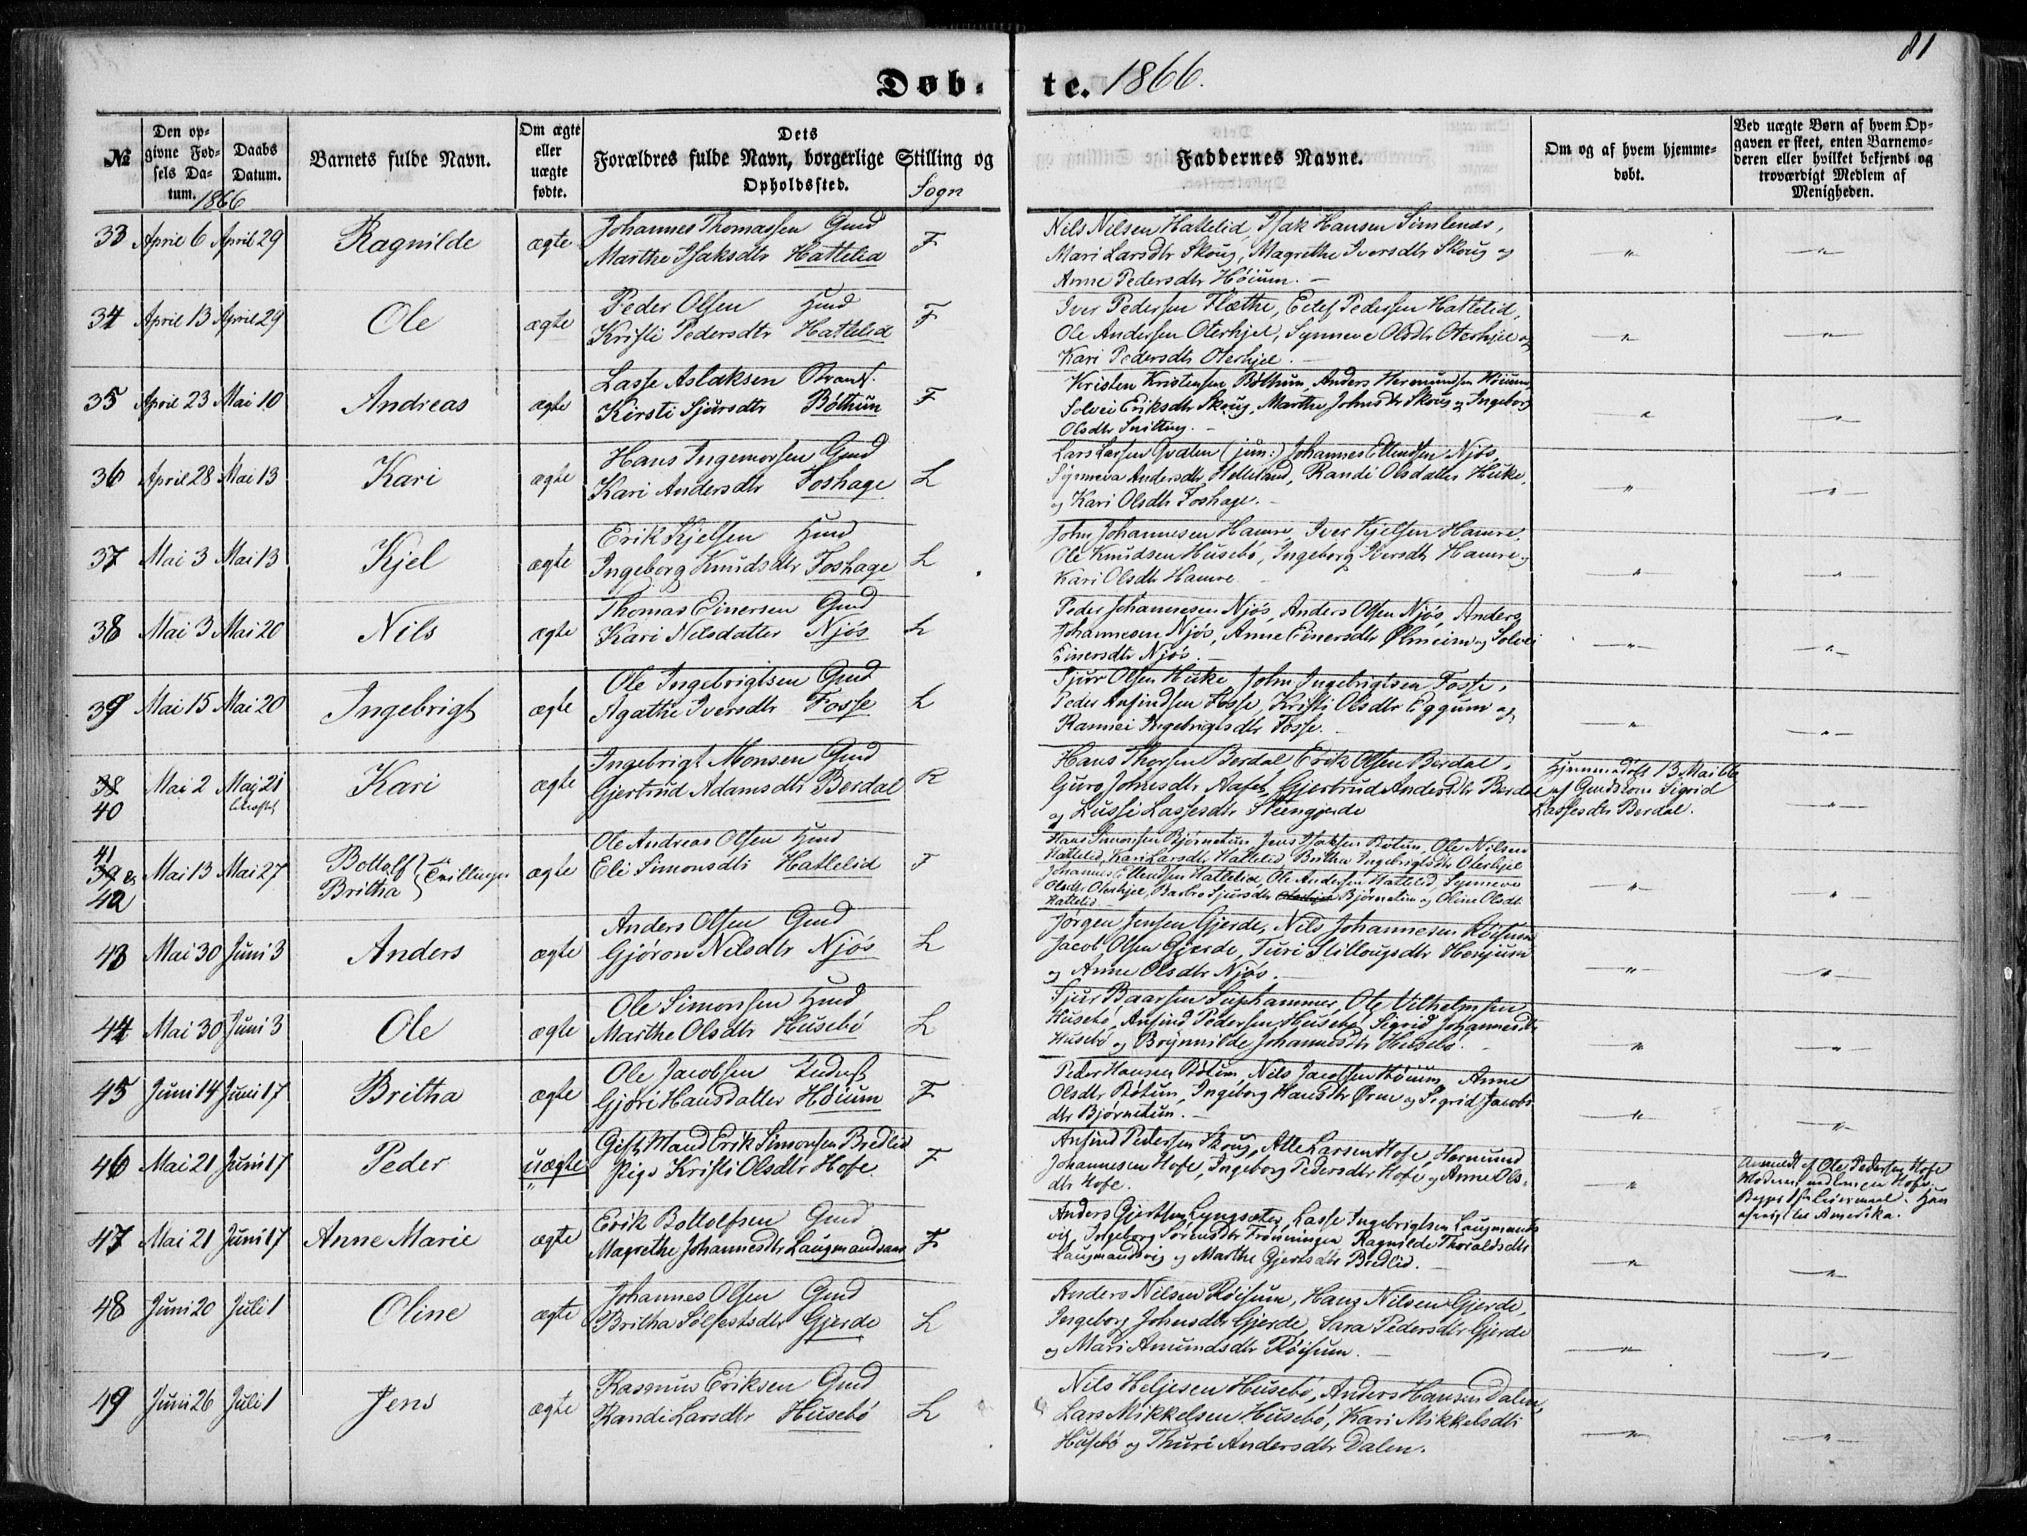 81
Døb-
te. 1866.
No
Den opgivne Fødsels Datum.
1866
Daabs Datum.
Barnets fulde Navn.
Om ægte eller uægte fødte.
Dets Forældres fulde Navn, borgerlige Stilling og Opholdssted.
Sogn
Faddernes Navne.
Om og af hvem hjemmedøbt.
Ved uægte Børn af hvem Opgaven er skeet, enten Barnemoderen eller hvilket bekjendt og troværdigt Medlem af Menigheden.
33 April 6 April 29 Ragnilde ægte Johannes Thomassen Gmd
Marthe Isaksdtr Hattelid F
Nils Nilsen Hattelid, Isak Hansen Simlenæs,
Mari Larsdtr Skoug, Magrethe Iversdtr Skoug og
Anne Pedersdtr Høium. — " "
34 April 13 April 29 Ole ægte Peder Olsen Hmd
Kristi Pedersdtr Hattelid F
Iver Pedersen Flæthe, Ellef Pedersen Hattelid,
Ole Andersen Oterhjel, Synneve Olsdtr Oterhjel og
Kari Pedersdtr Oterhjel. — " "
35 April 23 Mai 10 Andreas ægte Lasse Aslaksen Strand.
Kirsti Sjursdtr Bøthun F
Kristen Kristensen Bøthun, Anders Hermundsen Høium,
Solvei Eriksdtr Skoug, Marthe Johnsdtr Skoug og Ingeborg
Olsdtr Snitting. — " "
36 April 28 Mai 13 Kari ægte Hans Ingemorsen Gmd
Kari Andersdtr Foshage L
Lars Larsen Qvalen (jun:) Johannes Ellendsen Njøs,
Synneva Andersdtr Helleland, Randi Olsdatter Huke,
og Kari Olsdtr Foshage. — " "
37 Mai 3 Mai 13 Kjel ægte Erik Kjelsen Hmd
Ingeborg Knudsdtr Foshage L
John Johannesen Hamre, Iver Kjelsen Hamre,
Ole Knudsen Husebø, Ingeborg Iversdtr Hamre og
Kari Olsdtr Hamre " "
38 Mai 3 Mai 20 Nils ægte Thomas Einersen Gmd
Kari Nilsdatter Njøs L
Peder Johannesen Njøs, Anders Olsen Njøs, Anders
Johannesen Njøs, Anne Einersdtr Ølmeim og Solvei
Einersdtr Njøs. — " "
39 Mai 15 Mai 20 Ingebrigt ægte Ole Ingebrigtsen Gmd
Agathe Iversdtr Fosse L
Sjur Olsen Huke John Ingebrigtsen Fosse,
Peder Anfindsen Fosse, Kristi Olsdtr Eggum og
Ranvei Ingebrigtsdtr Fosse. — " "
38
40 Mai 2 Mai 21 Kari ægte Ingebrigt Monsen Gmd
Gjertrud Adamsdtr Berdal R
Hans Thorsen Berdal Erik Olsen Berdal,
Guro Johnsdtr Gjertrud Andersdtr Berdal
og Lussi Lassesdtr Steengjerde
Hjemmedøbt 13. Mai 66
af Gmdskone Sigrid
Lassesdtr Berdal. "
41
39 &
42 Mai 13 Mai 27 Bottolf
Britha } Tvillinger ægte Ole Andreas Olsen Hmd
Eli Simonsdtr Hattelid F
Hans Simonsen Bjørnetun, Jens Isaksen Røtum, Ole Nilsen
Hattelid, Kari Larsdtr Hattelid, Britha Ingebrigtsdtr Oterhjel
Johannes Ellendsen Hattelid, Ole Andersen Hattelid, Synneve
Olsdtr Oterhjel, Barbro Sjursdtr Bjørnetun og Oline Olsdtr
Hattelid. " "
43 Mai 30 Juni 3 Anders ægte Anders Olsen Gmd
Gjøron Nilsdtr Njøs L
Jørgen Jensen Gjerde, Nils Johannesen Røisum
Jacob Olsen Gjerde, Turi Stillougsdtr Henjum
og Anne Olsdtr Njøs. — " "
44 Mai 30 Juni 3 Ole ægte Ole Simonsen Hmd
Marthe Olsdtr Husebø L
Sjur Baarsen Suphammer, Ole Vilhelmsen
Husebø, Anfind Pedersen Husebø, Sigrid Johannesdtr
Husebø og Brynnilde Johannesdtr Husebø. — " "
45 Juni 14 Juni 17 Britha ægte Ole Jacobsen
Gjøri Hansdatter Høium F
Peder Hansen Røtum Nils Jacobsen Høium, Anne
Olsdtr Røtum, Ingeborg Hansdtr Ørne og Sigrid Jacobsdtr
Bjørnetun. — " "
46 Mai 21 Juni 17 Peder uægte Gift Mand Erik Simonsen Bredlid
Pige Kristi Olsdtr Hofe. F
Anfind Pedersen Skoug, Atle Larsen Hofe, Hermund
Johannesen Hofe, Ingeborg Pedersdtr Hofe og Anne Olsdtr
Hofe. " Anmeldt af Ole Pedersen Hofe
afreist til Amerika.
47 Mai 21 Juni 17 Anne Marie ægte Erik Bottolfsen Gmd
Magrethe Johannesdtr F
Anders Gjertsen Lyngsæter, Lasse Ingebrigtsen Laugmandsvig,
Ingeborg Sørensdtr Frønningen Ragnilde Thoraldsdtr
Laugmandsvig og Marthe Gjertsdtr Bredlid. — " "
48 Juni 20 Juli 1 Oline ægte Johannes Olsen Gmd
Britha Sølfestsdtr Gjerde L
Anders Nilsen Røisum, Hans Nilsen Gjerde,
Ingeborg Johnsdtr Gjerde, Sara Pedersdtr Gjerde
og Mari Amundsdtr Røisum. — " "
49 Juni 26 Juli 1 Jens ægte Rasmus Eriksen Gmd
Randi Larsdtr Husebø L
Nils Heljesen Husebø, Anders Hansen Dalen,
Lars Mikkelsen Husebø, Kari Mikkelsdtr
Husebø og Thuri Andersdtr Dalen. " "